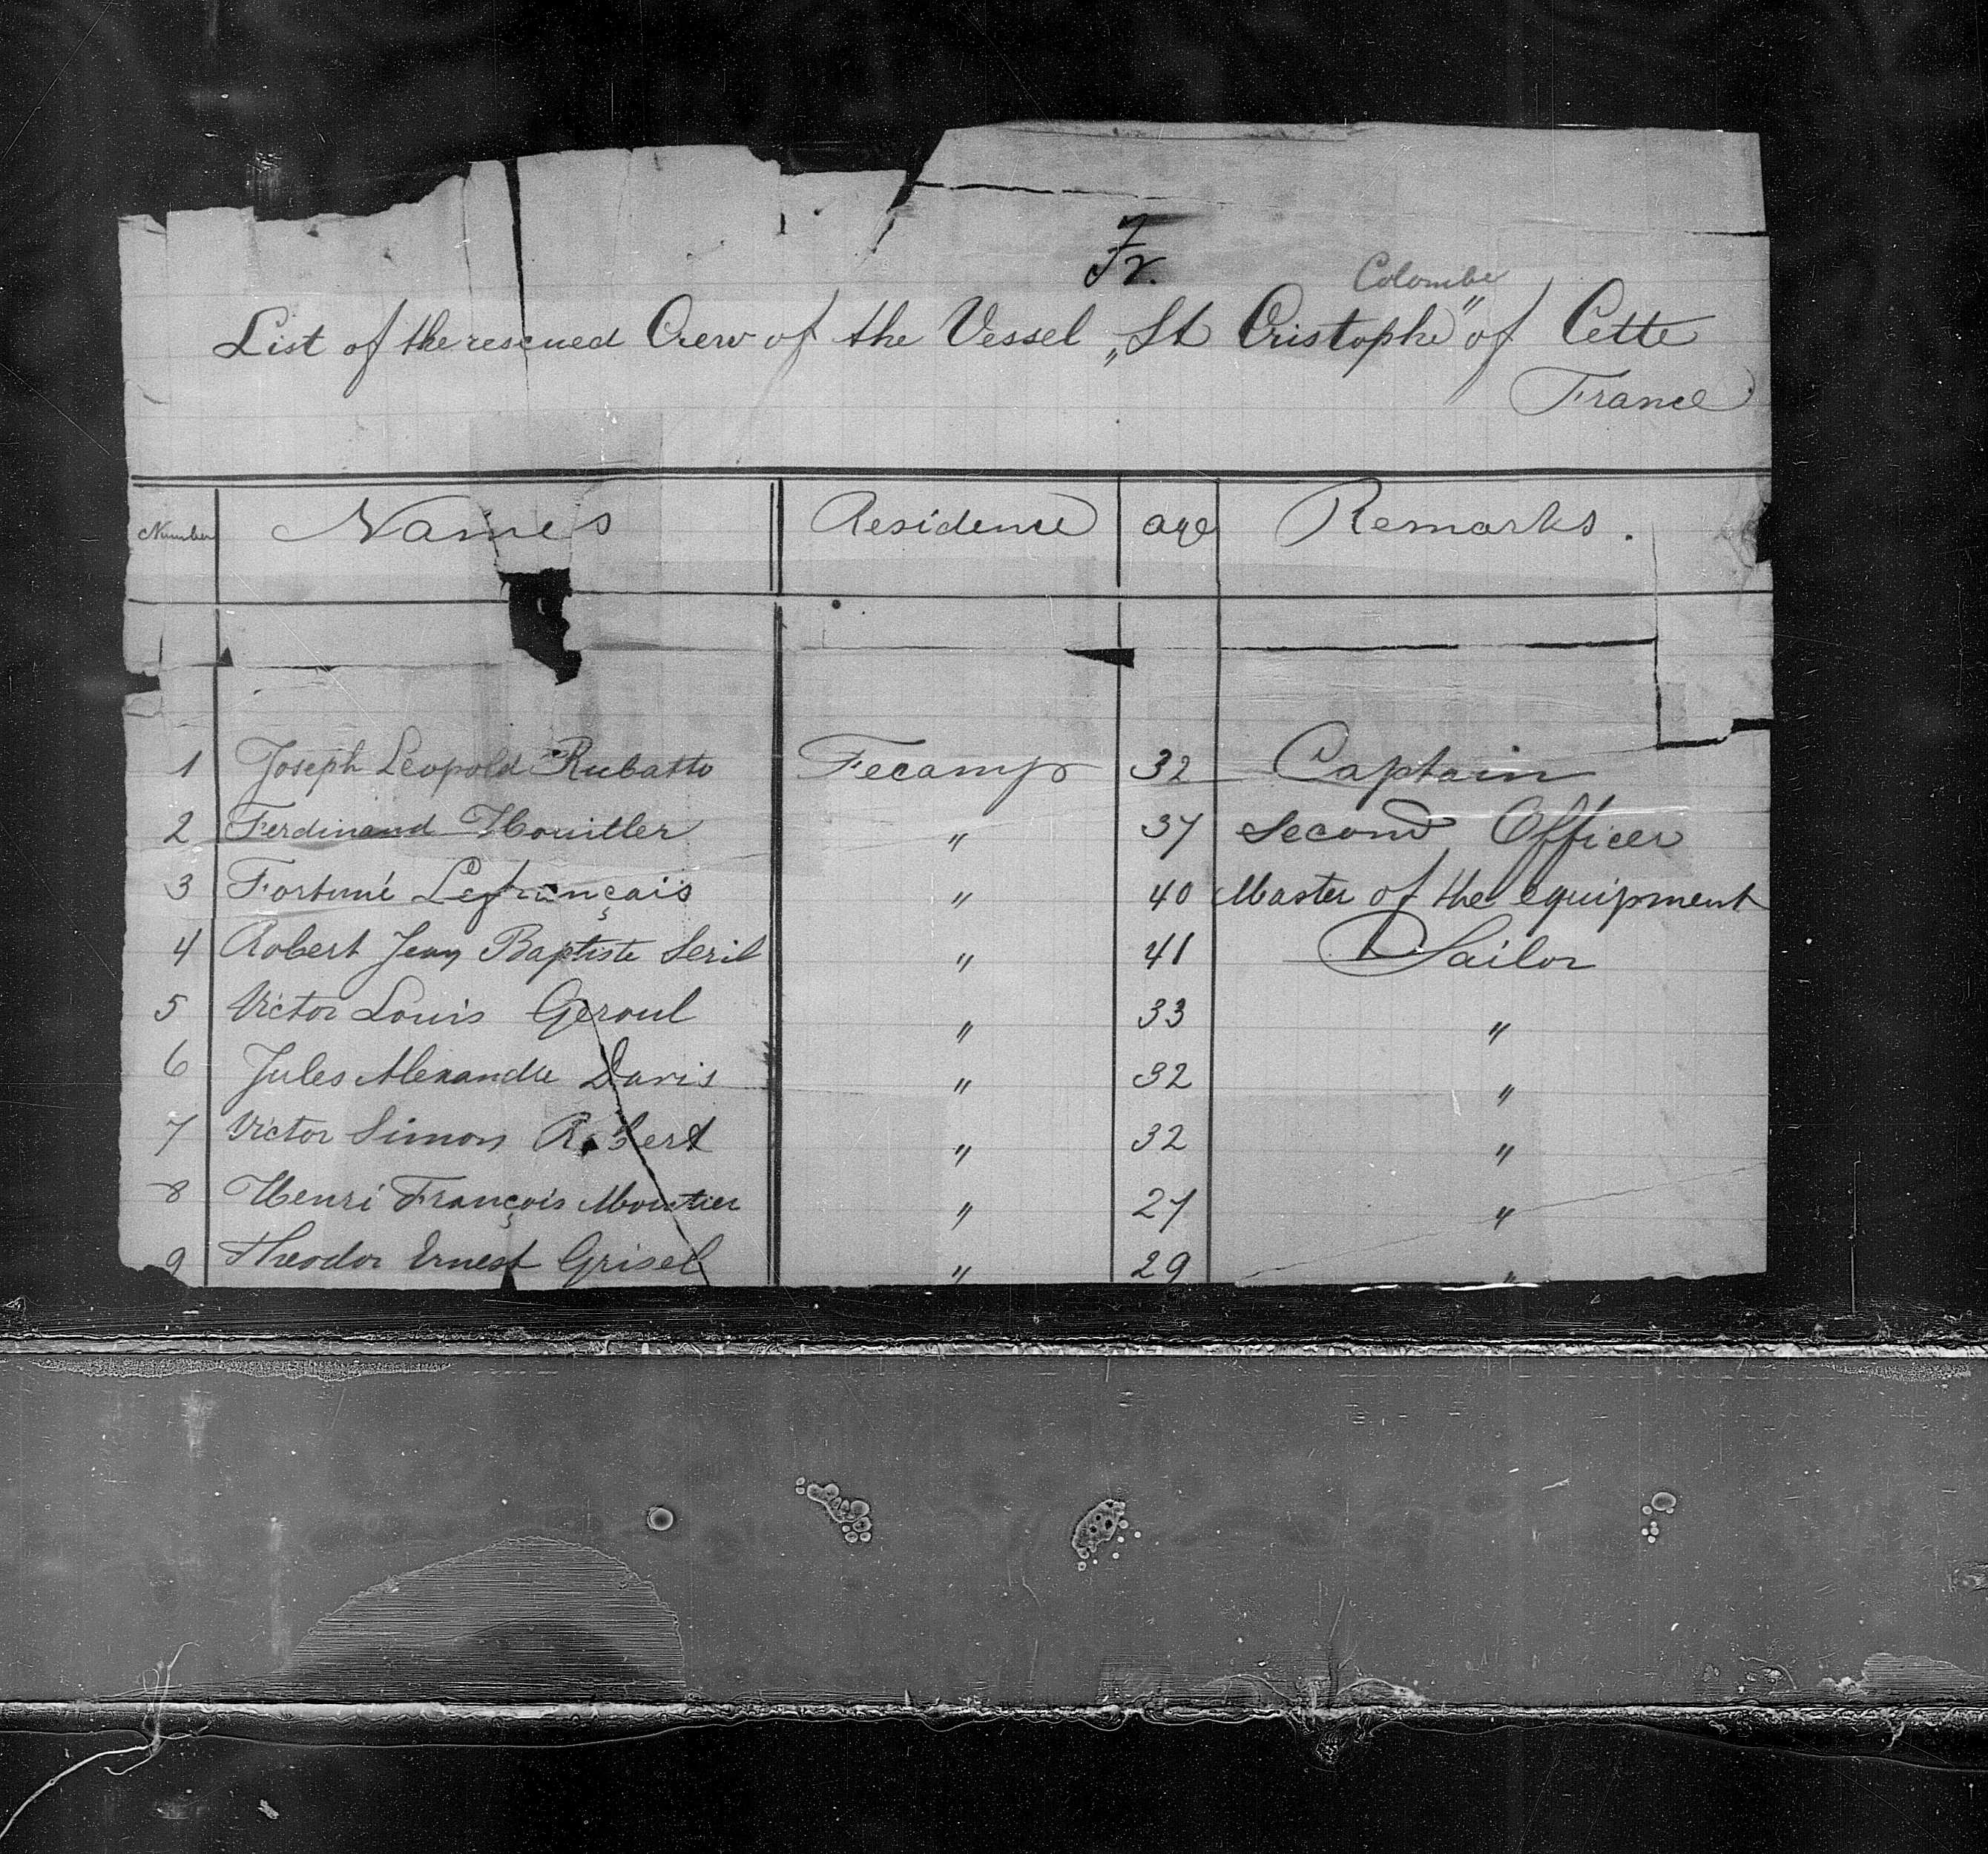 Fr.
Colombe
List of the rescued Crew of the Vessel „St Cristophe" of Cette
France
Number Names Residence age Remarks.
1 Joseph Leopold Rubatto Fecamp 32 Captain
2 Ferdinand Houiller " 37 Second Officer
3 Fortuné Lefrançais " 40 Master of the equipment
4 Robert Jean Baptiste Seril " 41 Sailor
5 Victor Louis Geroul " 33 "
6 Jules Alexandre Davis " 32 "
7 Victor Simon Robert " 32 "
8 Henri François Moutier " 27 "
9 Theodor Ernest Grisel " 29 "